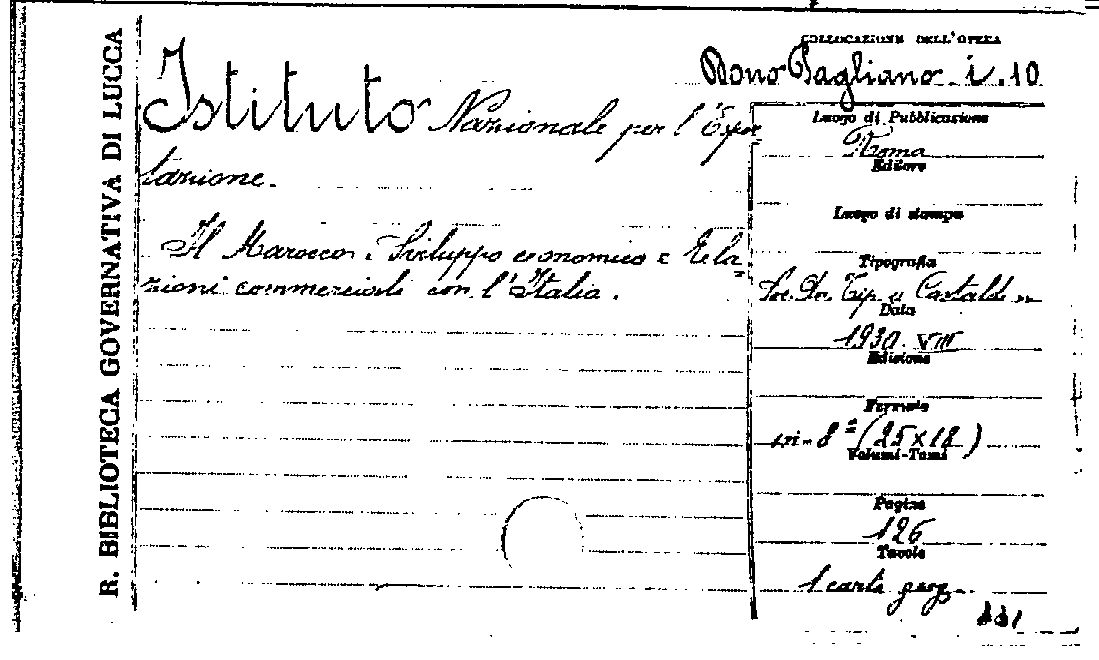 R. BIBLIOTECA GOVERNATIVA DI LUCCA
COLLOCAZIONE DELL'OPERA
Dono Pagliano i. 10
Istituto Nazionale per l'Espor=
tazione.
Il Marocco. Sviluppo economico e Rela=
zioni commerciali con l'Italia.
Luogo di Pubblicazione
Roma
Editore
Luogo di stampa
Tipografia
Soc. Do. Tip. Castaldi
Data
1930. VIII
Edizione
Formato
in-8º (25x18)
Volumi-Tomi
Pagine
126
Tavole
1 carta geog.